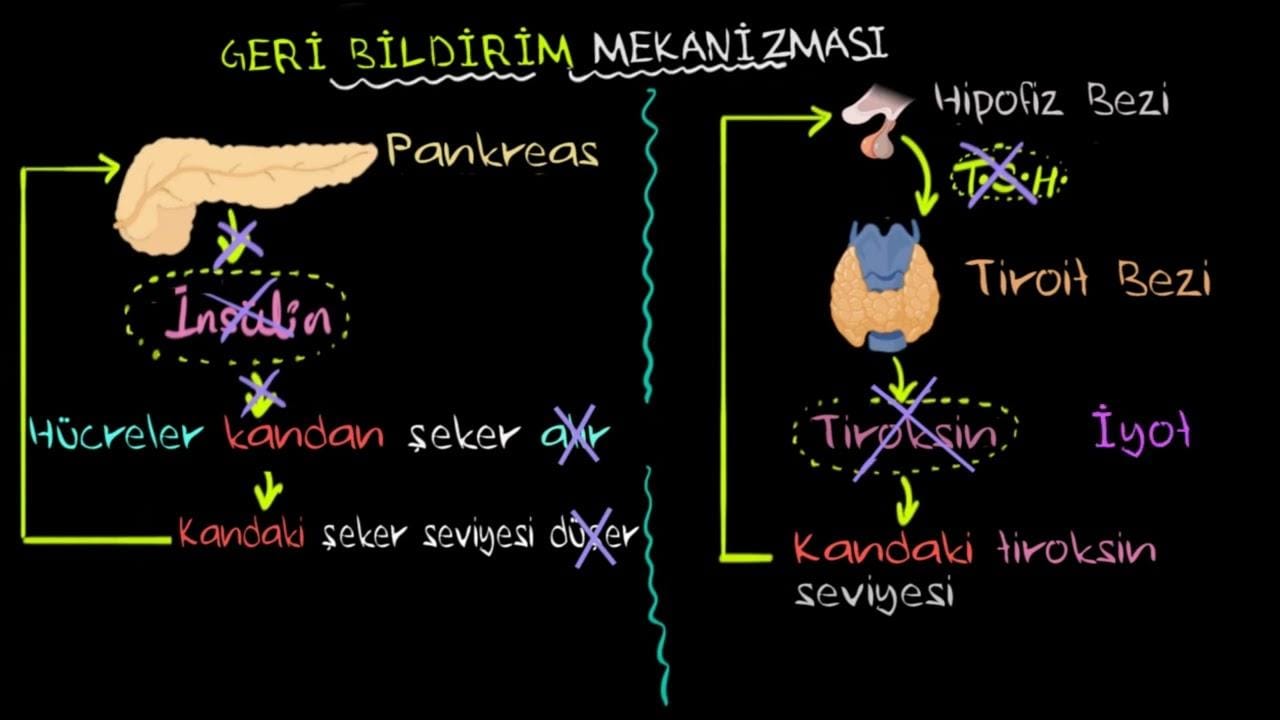 GERİ BİLDİRİM MEKANİZMASI
Pankreas
İnsülin
Hücreler kandan şeker alır
Kandaki şeker seviyesi düşer
Hipofiz Bezi
T.S.H.
Tiroit Bezi
Tiroksin
İyot
Kandaki tiroksin
seviyesi